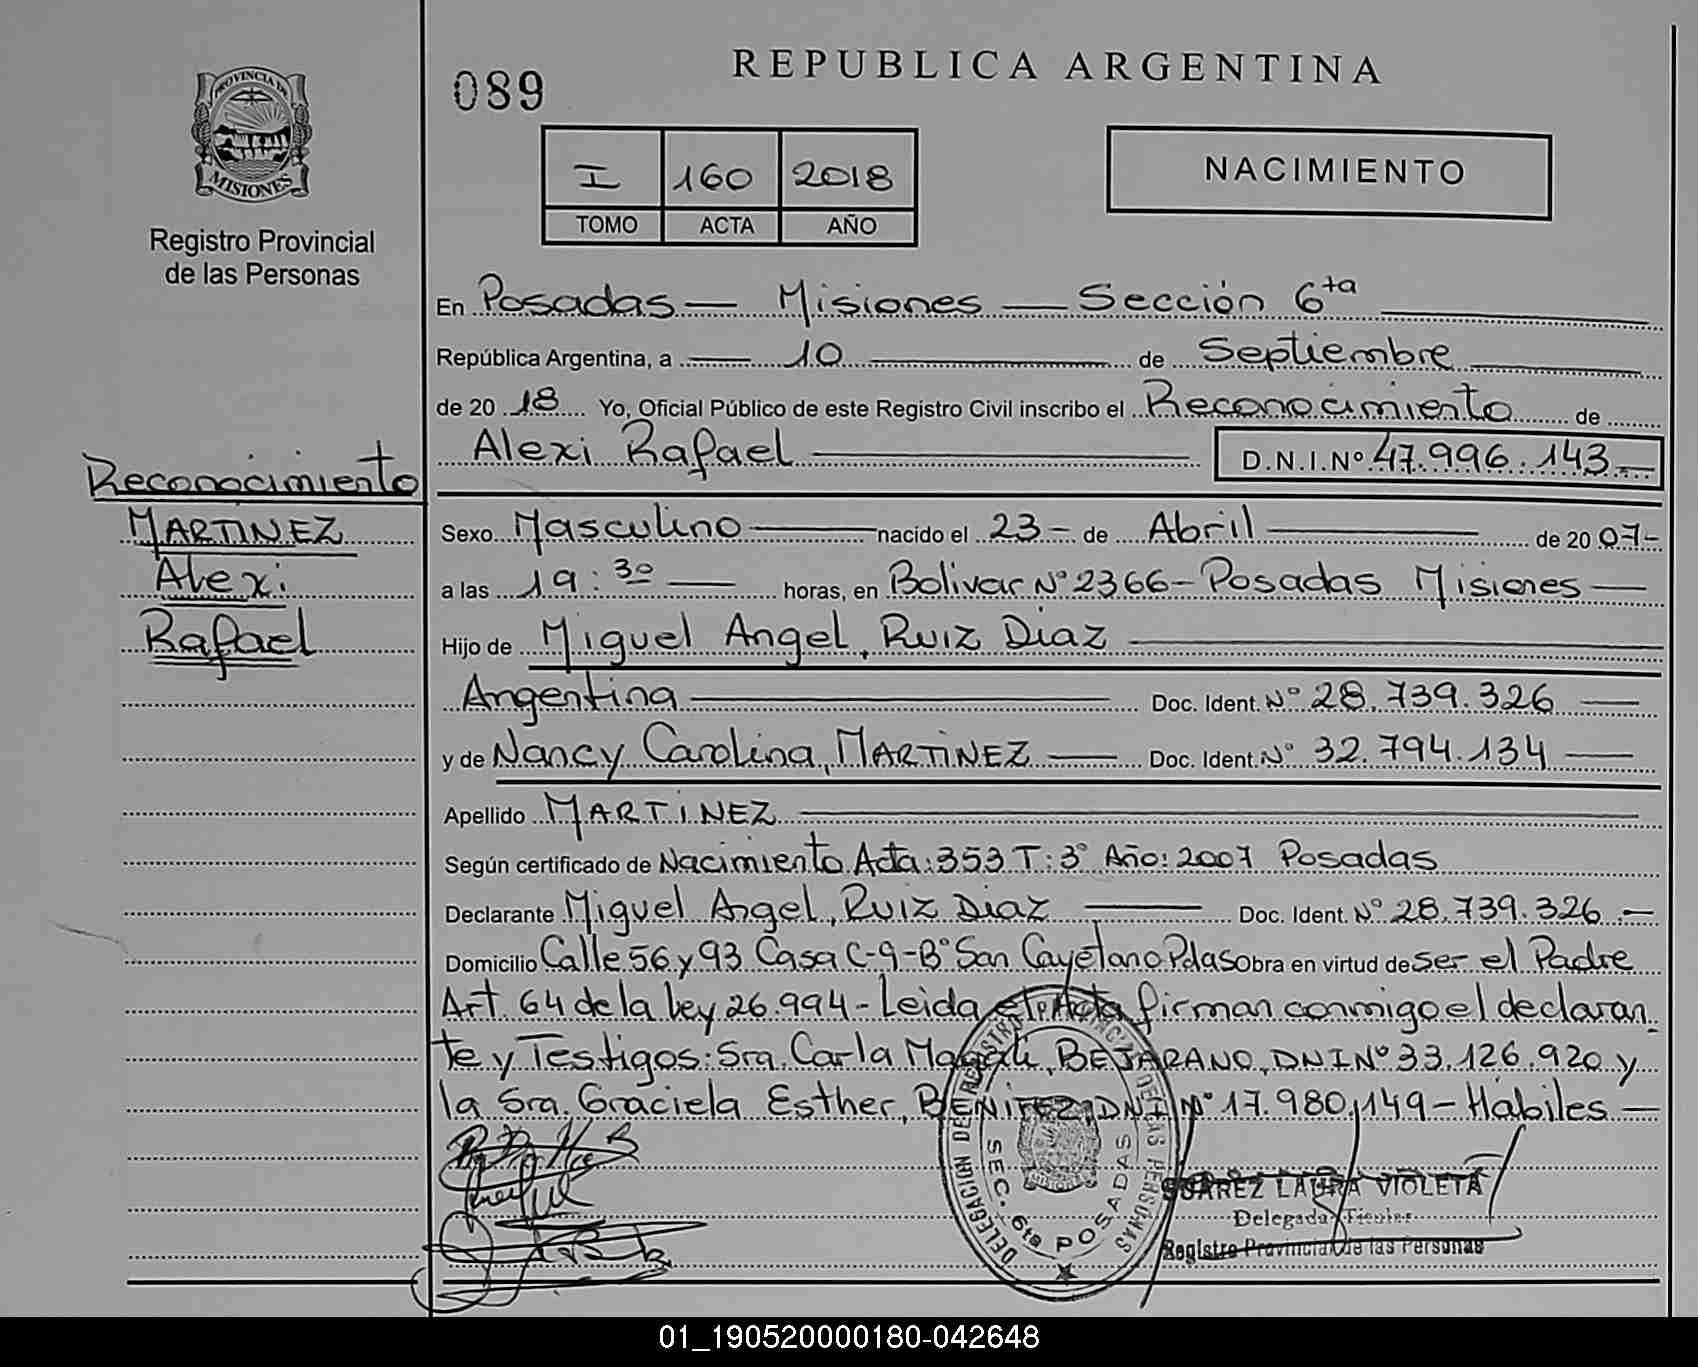 PROVINCIA DE
MISIONES
Registro Provincial
de las Personas
089
REPUBLICA ARGENTINA
I 160 2018
TOMO ACTA AÑO
NACIMIENTO
En Posadas — Misiones — Sección 6ta
República Argentina, a 10 de Septiembre
de 20 18 Yo, Oficial Público de este Registro Civil inscribo el Reconocimiento de
Alexi Rafael D.N.I.Nº 47.996.143
Reconocimiento
MARTINEZ
Alexi
Rafael
Sexo Masculino nacido el 23 - de Abril de 20 07-
a las 19:30 horas, en Bolivar Nº 2366 - Posadas Misiones
Hijo de Miguel Angel, Ruiz Diaz
Argentina Doc. Ident. Nº 28.739.326
y de Nancy Carolina, MARTINEZ Doc. Ident. Nº 32.794.134
Apellido MARTINEZ
Según certificado de Nacimiento Acta: 353 T: 3º Año: 2007 Posadas
Declarante Miguel Angel, Ruiz Diaz Doc. Ident. Nº 28.739.326
Domicilio Calle 56 y 93 Casa C-9-Bº San Cayetano Pdas Obra en virtud de ser el Padre
Art. 64 de la ley 26.994 - Leida el Acta firman conmigo el declaran
te y Testigos: Sra. Carla Magali, BEJARANO, DNI Nº 33.126.920 y
la Sra. Graciela Esther, BENITEZ, DNI Nº 17.980.149 - Hábiles
DELEGACION DEL REGISTRO PROVINCIAL DE LAS PERSONAS
SEC. 6ta POSADAS
SUAREZ LAURA VIOLETA
Delegada Titular
Registro Provincial de las Personas
01_190520000180-042648